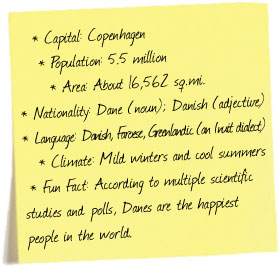 * Capital: Copenhagen
* Population: 5.5 million
* Area: About 16,562 sq.mi.
* Nationality: Dane (noun); Danish (adjective)
* Language: Danish, Faroese, Greenlandic (an Inuit dialect)
* Climate: Mild winters and cool summers
* Fun Fact: According to multiple scientific
studies and polls, Danes are the happiest
people in the world.